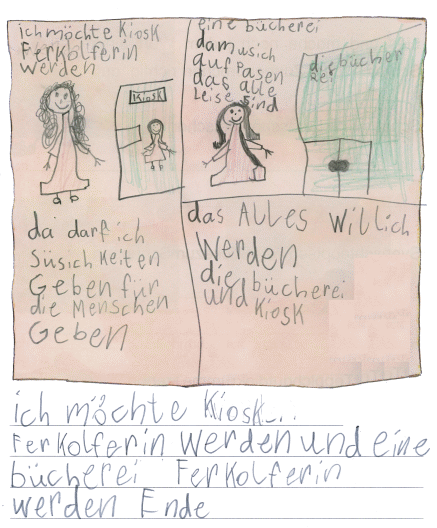 ich möchte Kiosk
Ferkolferin
werden
Kiosk
da darf ich
süsichkeiten
Geben für
die Menschen
Geben
eine bücherei
da musich
auf Pasen
das alle
Leise sind
die bücher
rei
das ALLes Willich
Werden
die bücherei
und Kiosk
ich möchte Kiosk...
Ferkolferin werden und eine
bücherei Ferkolferin
werden Ende